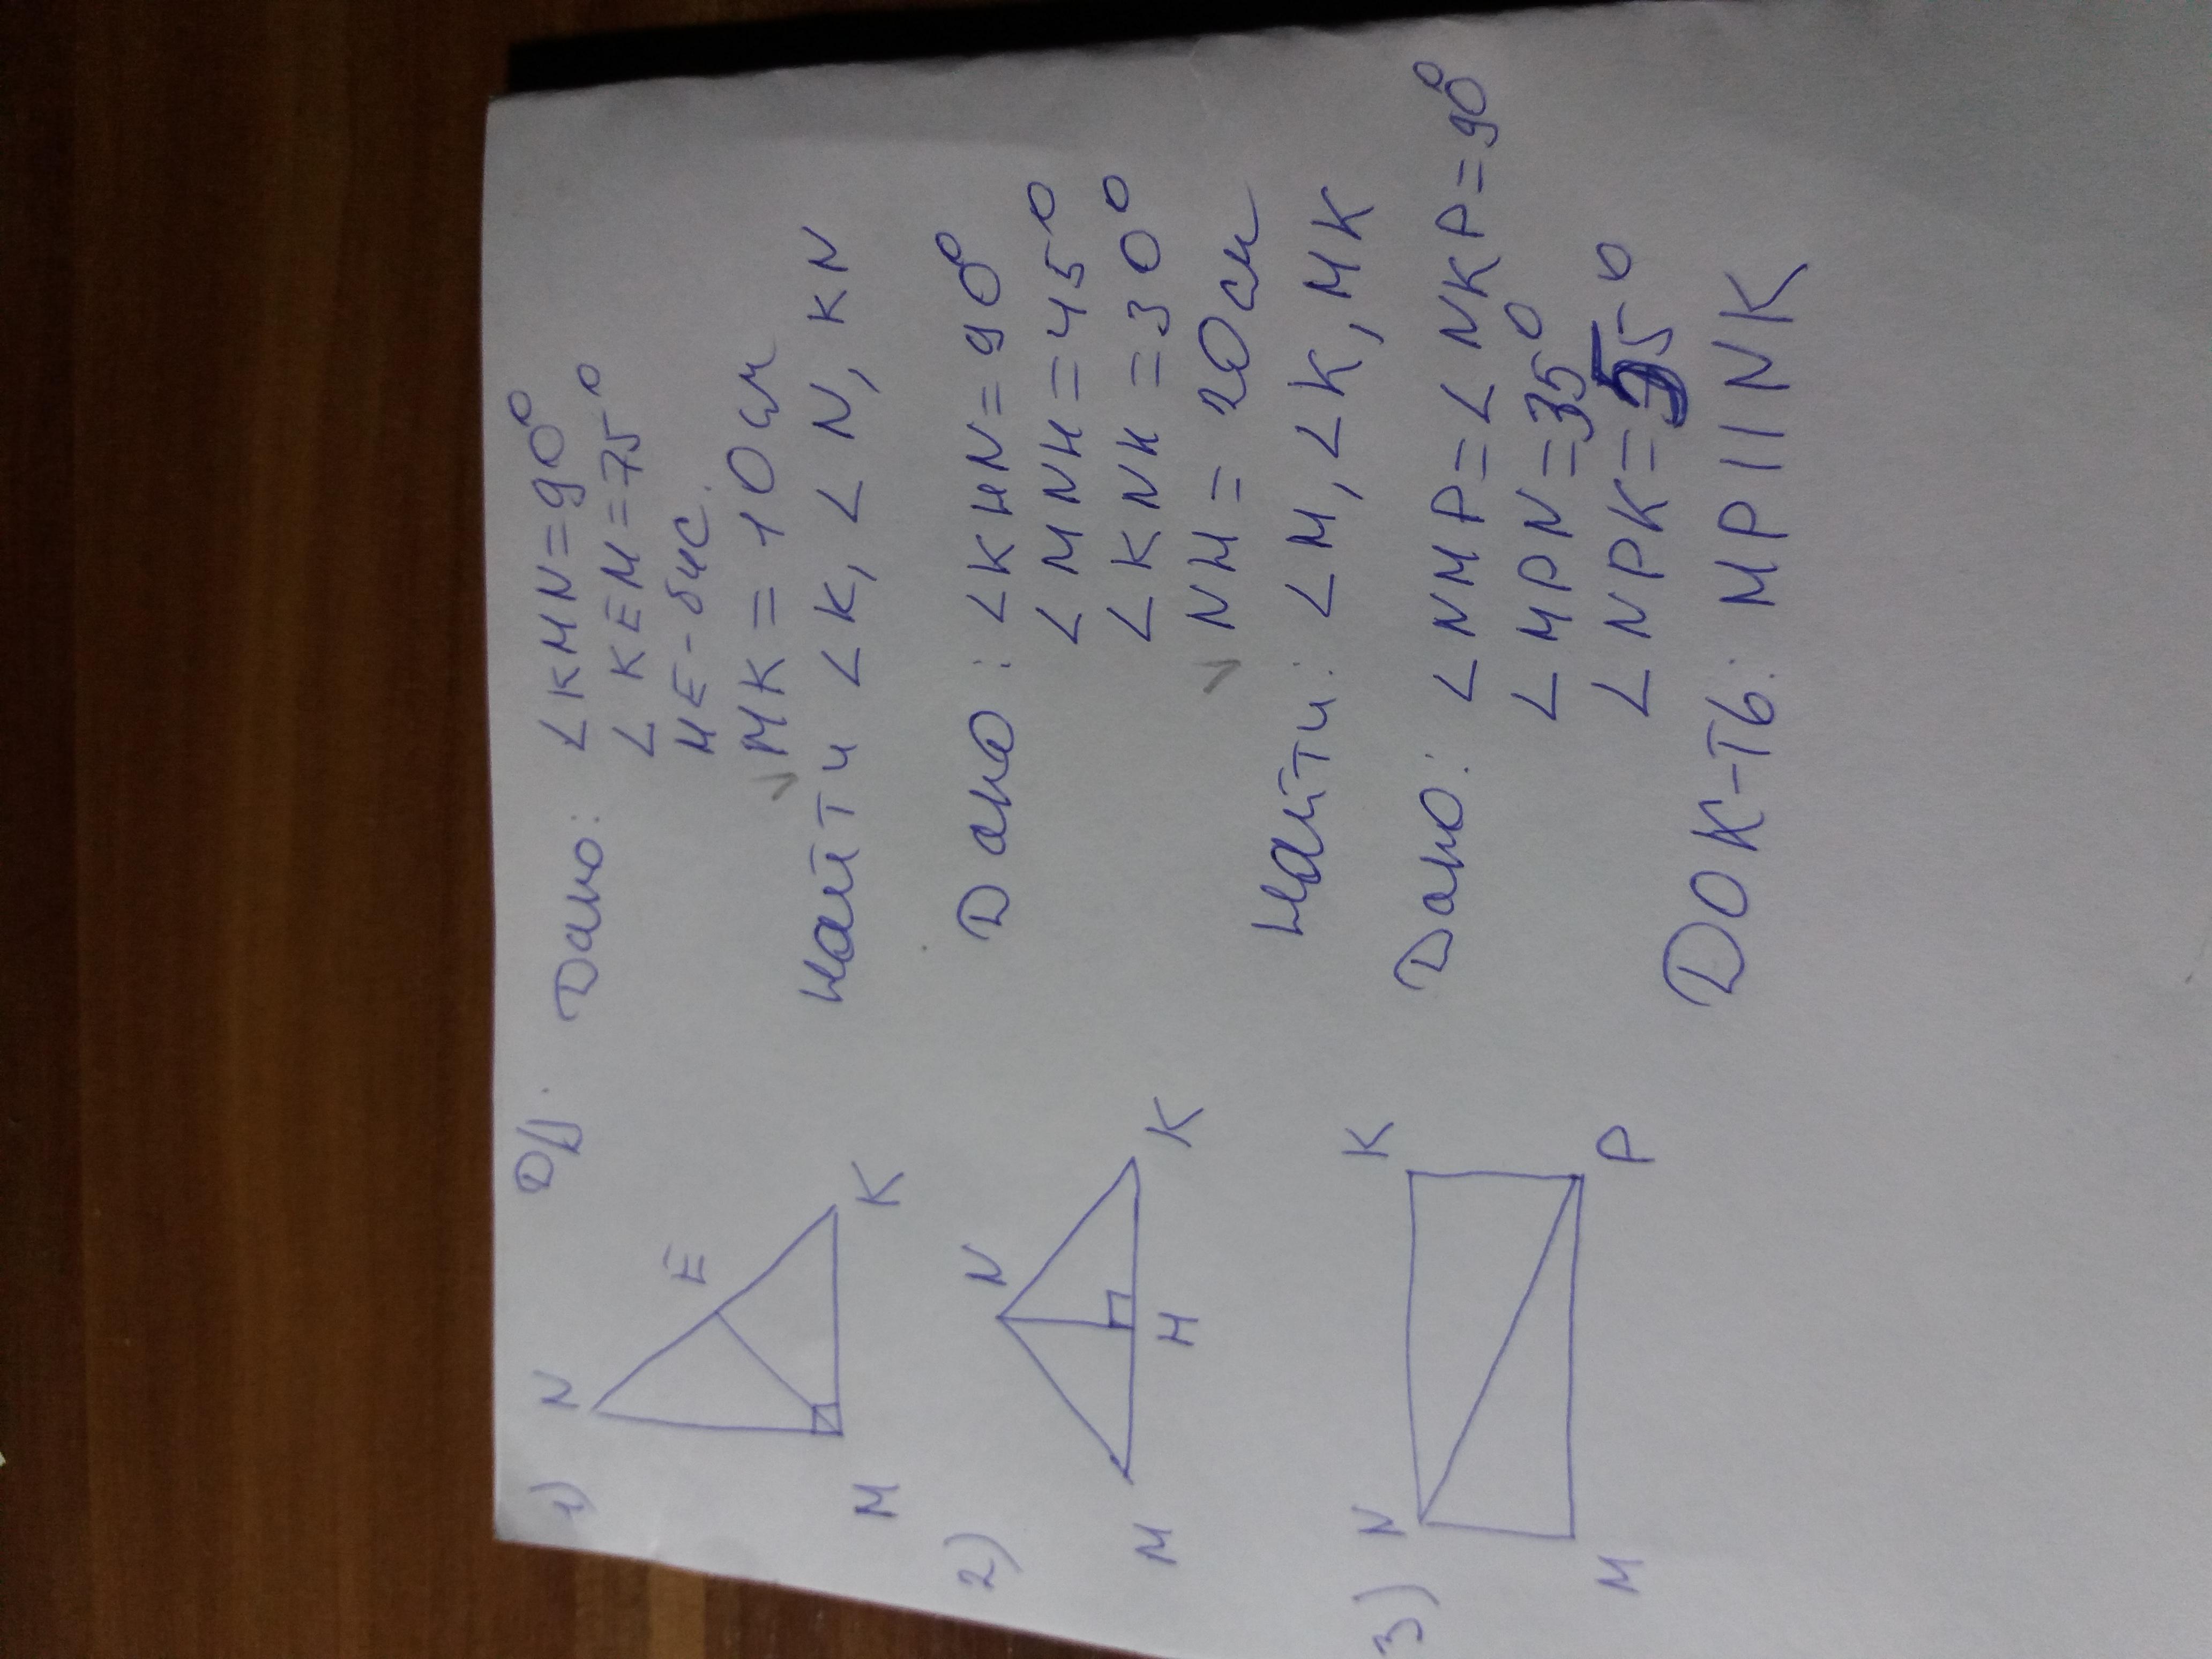 Д/
1) Дано: ∠KMN=90°
∠KEM=75°
ME-бис.
MK=10см
Найти ∠K, ∠N, KN
N
E
M
K
2) Дано: ∠KHN=90°
∠MNH=45°
∠KNH=30°
NM=20см
Найти: ∠M, ∠K, MK
N
M
H
K
3) Дано: ∠NMP=∠NKP=90°
∠MPN=35°
∠NPK=55°
Док-ть: MP||NK
N
K
M
P